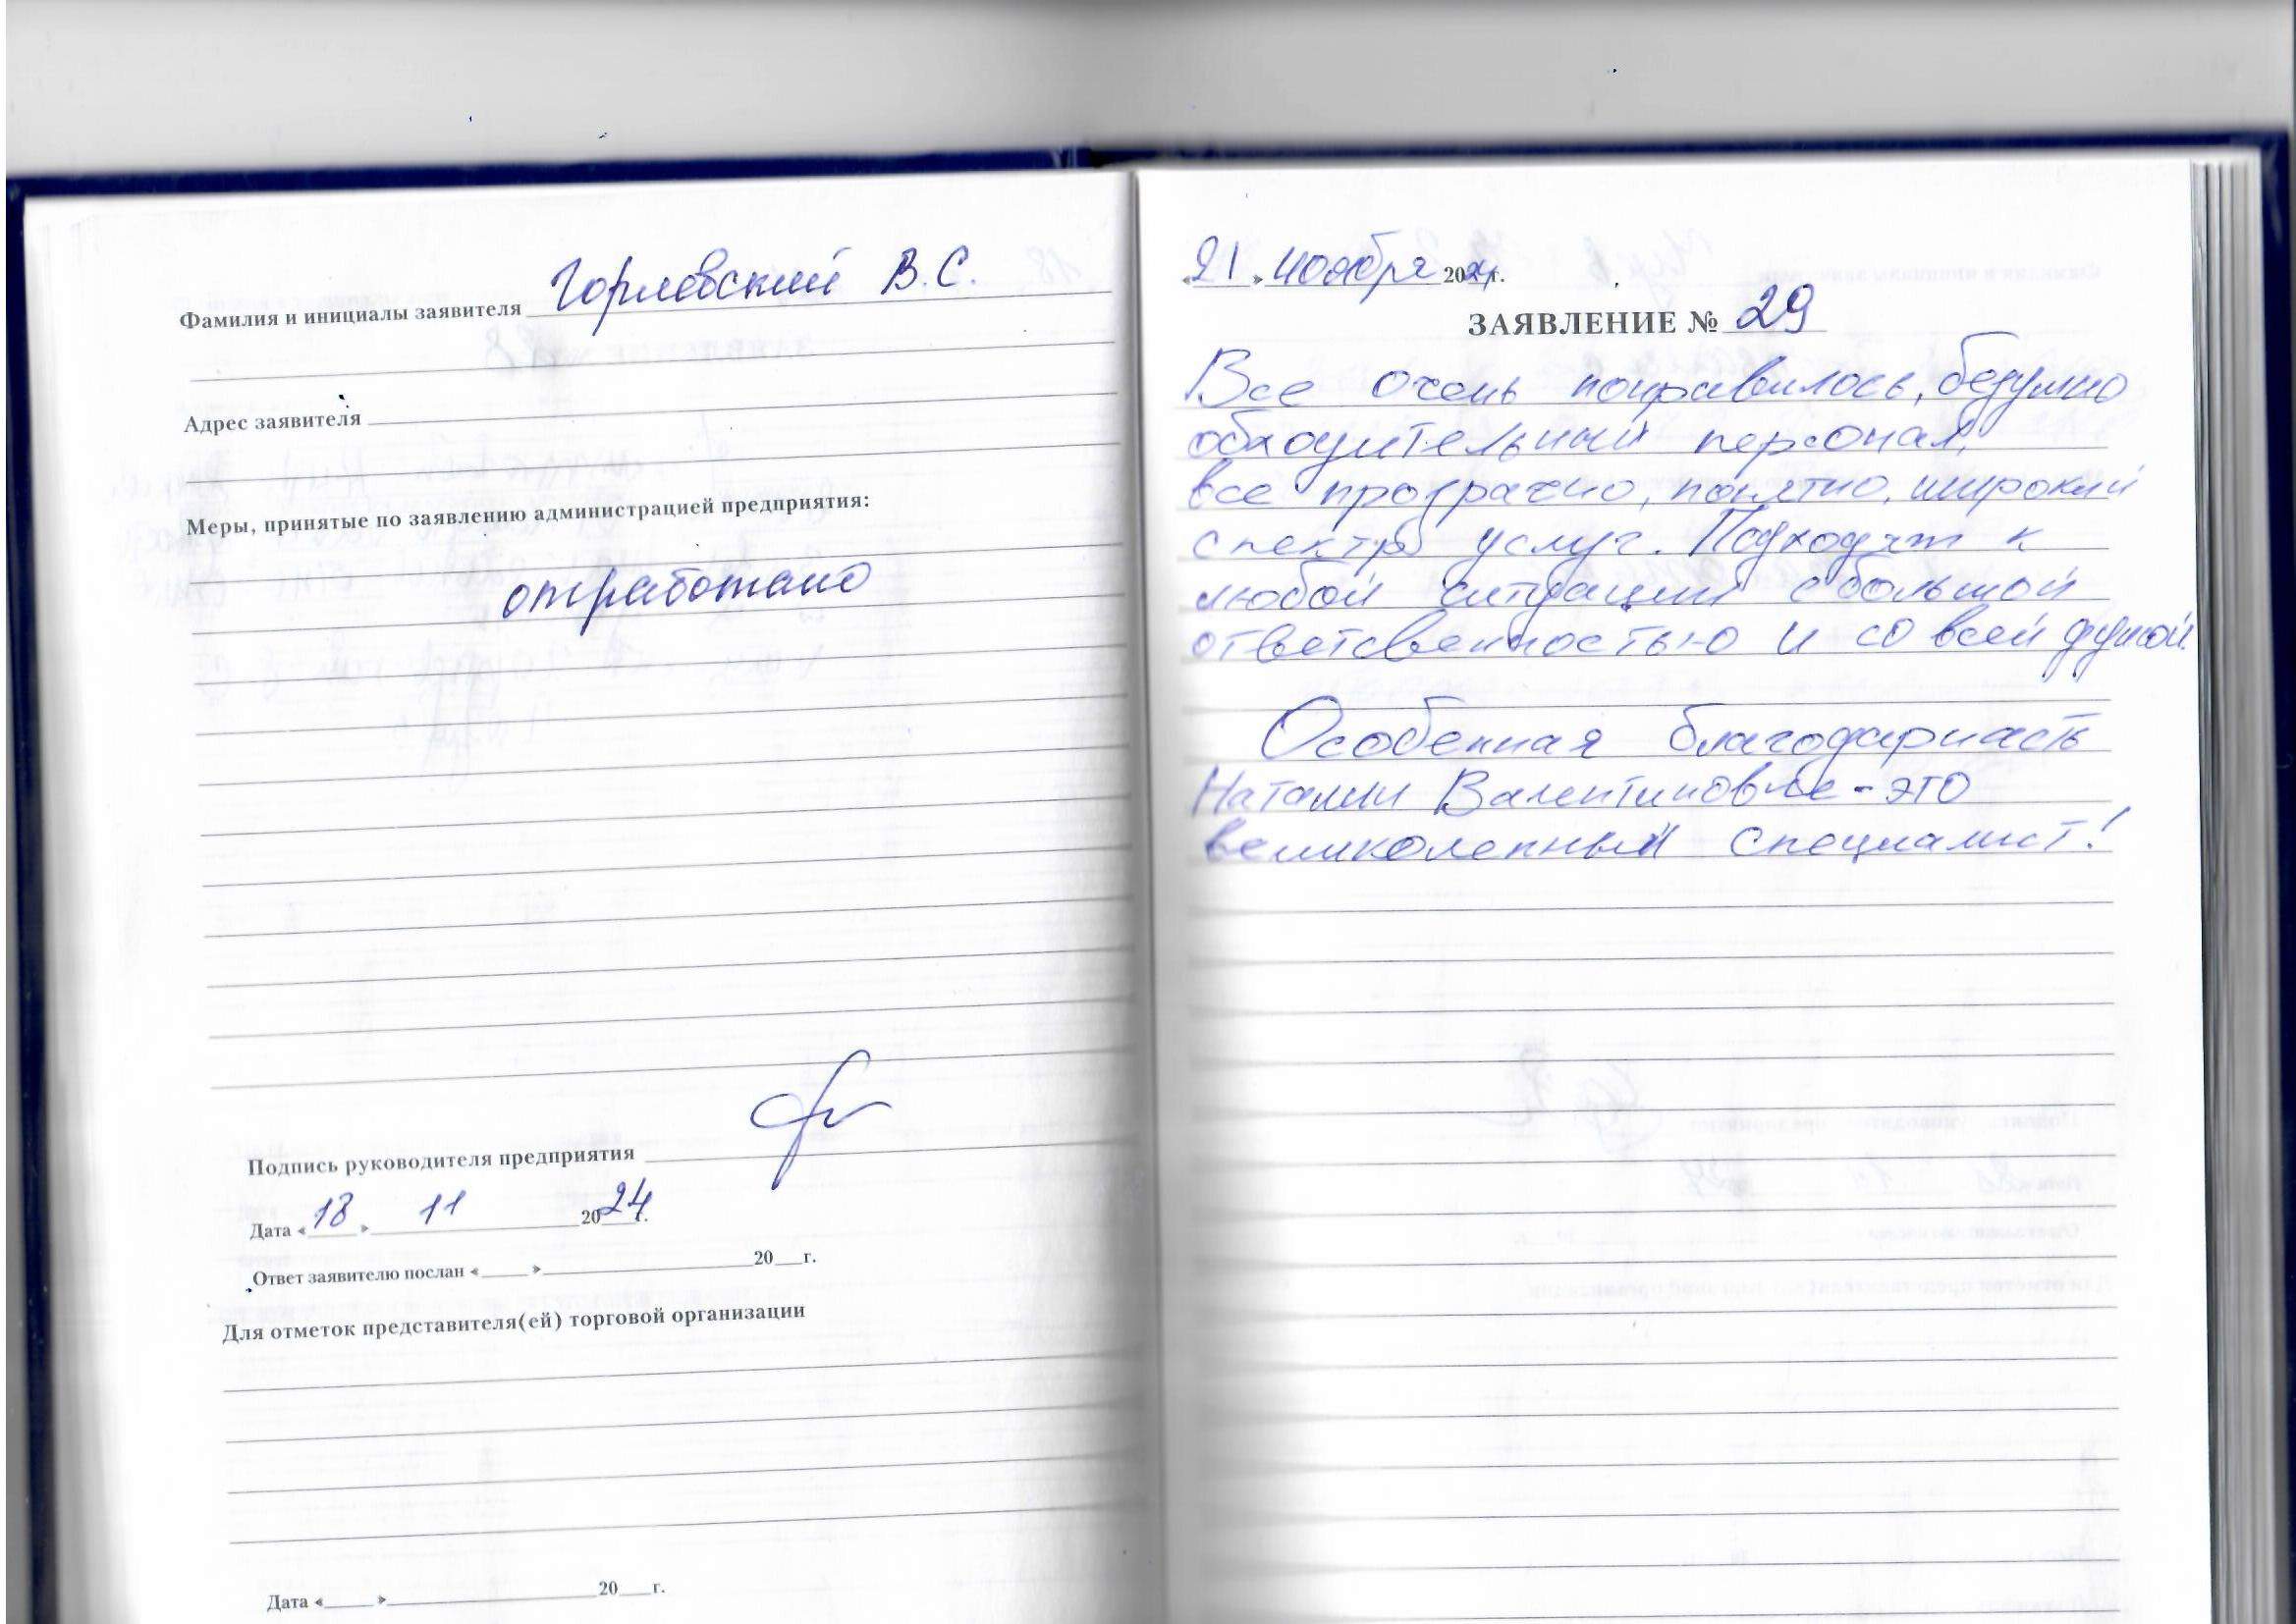 Фамилия и инициалы заявителя Горлевский В.С.
Адрес заявителя
Меры, принятые по заявлению администрацией предприятия:
отработано
Подпись руководителя предприятия
Дата «18» 11 2024г.
Ответ заявителю послан «___»___20__г.
Для отметок представителя(ей) торговой организации
Дата «___»___20__г.
«21» ноября 2024г.
ЗАЯВЛЕНИЕ № 29
Все очень понравилось,
обходительный персонал,
все прозрачно, понятно, широкий
спектр услуг. Подходят к
любой ситуации с большой
ответсвенностью и со всей душой.
Особенная благодарность
Наталии Валентиновне - это
великолепный специалист!